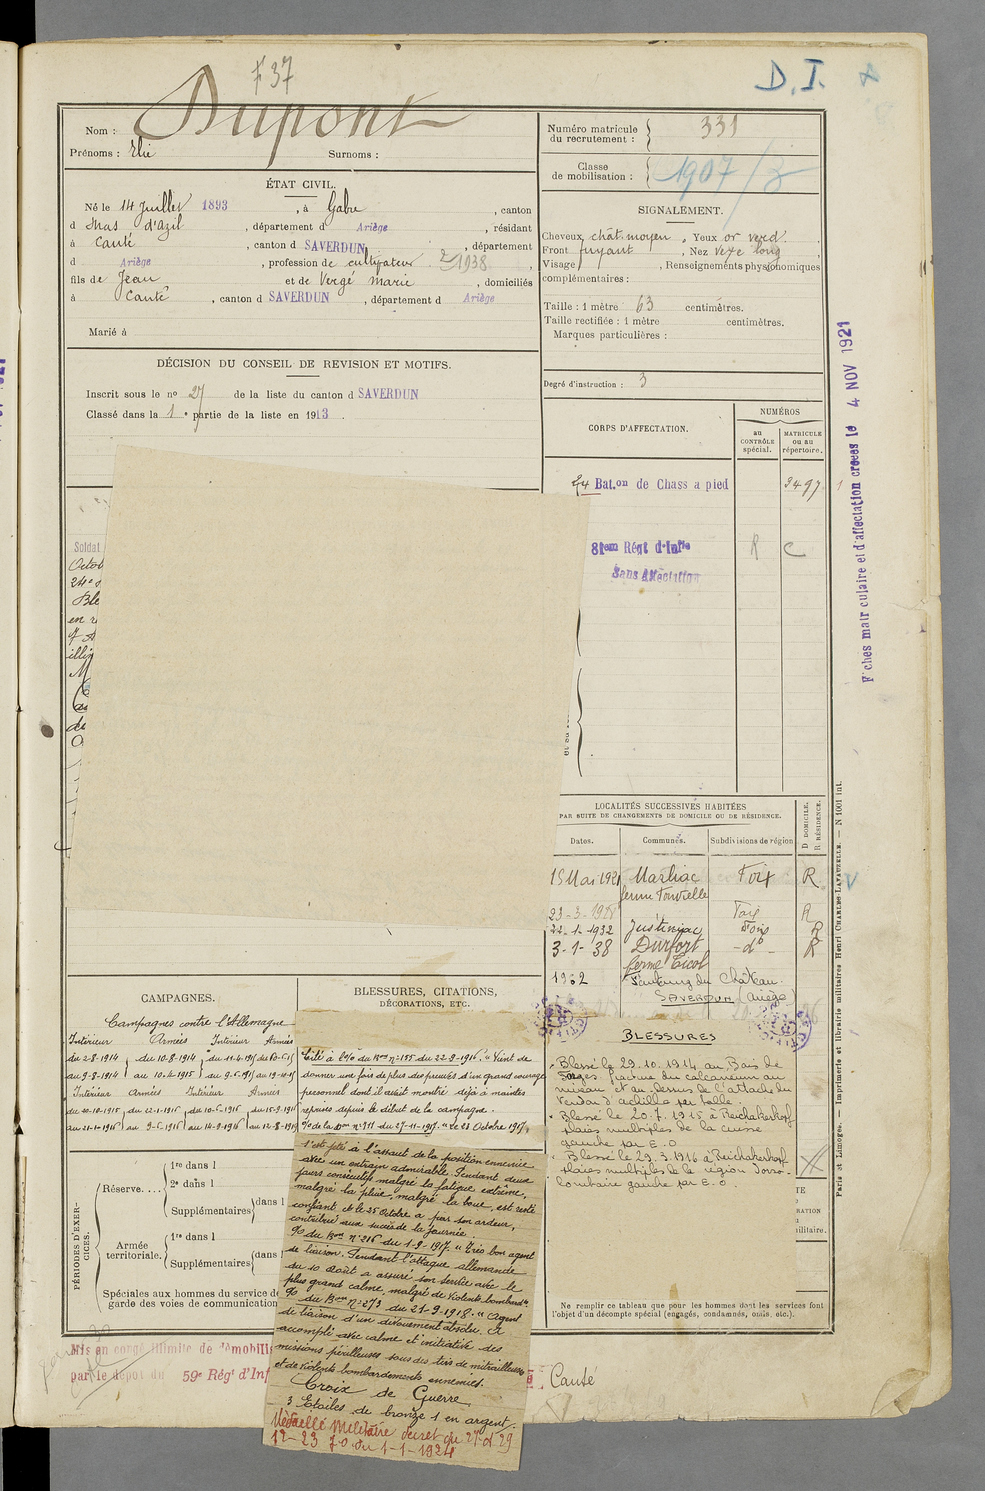 F 37
D. I.
Nom : Dupont
Prénoms : Elie Surnoms :
Numéro matricule du recrutement : 331
Classe de mobilisation : 1907/3
ÉTAT CIVIL.
Né le 14 Juillet 1893, à Gabre, canton
d Mas d'azil, département d Ariège, résidant
à Canté, canton d SAVERDUN, département
d Ariège, profession de cultivateur 1938
fils de Jean et de Vergé Marie, domiciliés
à Canté, canton d SAVERDUN, département d Ariège
Marié à
SIGNALEMENT.
Cheveux chât. moyen, Yeux or verd.
Front fuyant, Nez vexe long
Visage , Renseignements physionomiques
complémentaires :
Taille : 1 mètre 63 centimètres.
Taille rectifiée : 1 mètre centimètres.
Marques particulières :
Degré d'instruction : 3
DÉCISION DU CONSEIL DE REVISION ET MOTIFS.
Inscrit sous le nº 27 de la liste du canton d SAVERDUN
Classé dans la 1 e partie de la liste en 1913.
CORPS D'AFFECTATION.
NUMÉROS
au CONTRÔLE spécial.
MATRICULE ou au répertoire.
24 Bat.on de Chass a pied 3497
81em Régt d'Infie R C
Sans Affectation
Fiches matriculaire et d'affectation créées le 4 NOV 1921
Soldat
Octob
24e
Ble
en
LOCALITÉS SUCCESSIVES HABITÉES
PAR SUITE DE CHANGEMENTS DE DOMICILE OU DE RÉSIDENCE.
D DOMICILE.
R RÉSIDENCE.
Dates. Communes. Subdivisions de région
15 Mai 1921 Marliac Foix R
ferme
23-3-1928 Foix R
22-1-1932 Justiniac Foix R
3-1-38 Durfort -dº- R
ferme Picol
1962 Faubourg du Château
SAVERDUN (Ariège)
CAMPAGNES.
Campagnes contre l'Allemagne
Intérieur Armées Intérieur Armées
du 2-8-1914 du 10-8-1914 du 11-4-1915 du
au 9-8-1914 au 10-4-1915 au
Intérieur Armées Intérieur Armées
du 20-10-1915 du 22-1-1916 du 10-5-1916 du 15-9-1916
au 21-1-1916 au 9-5-1916 au 14-9-1916 au 12-8-1919
BLESSURES, CITATIONS,
DÉCORATIONS, ETC.
Cité à l'o/o du Bon nº 155 du 22-8-1916. "Vient de
donner une fois de plus des preuves d'un grand courage
personnel dont il avait montré déjà à maintes
reprises depuis le début de la campagne.
o/o de la Don nº 311 du 27-11-1917. "Le 23 Octobre 1917,
s'est jeté à l'assaut de la position ennemie
avec un entrain admirable. Pendant deux
jours consécutifs malgré la fatigue extrême,
malgré la pluie, malgré la boue, est resté
confiant et le 25 Octobre a par son ardeur,
contribué aux succès de la journée.
o/o du Bon nº 216 du 1-9-1917. "Très bon agent
de liaison. Pendant l'attaque allemande
du 10 Août a assuré son service avec le
plus grand calme, malgré de violents bombardts.
o/o du Bon nº 273 du 21-9-1918. "Agent
de liaison d'un dévouement absolu. A
accompli avec calme et initiative des
missions périlleuses sous des tirs de mitrailleuses
et de violents bombardements ennemis.
Croix de Guerre
3 Etoiles de bronze 1 en argent.
Médaille Militaire décret du 27 et 29
12-23 J.O. du 1-1-1924
BLESSURES
Blessé le 29.10.1914 au Bois de
Forges fracture du calcanéum au
niveau et au dessus de l'attache du
tendon d'achille par balle.
Blessé le 20.7.1915 à Reichakerkopf
plaies multiples de la cuisse
gauche par E.O
Blessé le 29.3.1916 à Reichakerkopf
plaies multiples de la région dorso
lombaire gauche par E.O.
PÉRIODES D'EXERCICES.
Réserve....
1re dans l
2e dans l
Supplémentaires dans l
Armée territoriale.
1re dans l
Supplémentaires dans
Spéciales aux hommes du service de
garde des voies de communication
Ne remplir ce tableau que pour les hommes dont les services font
l'objet d'un décompte spécial (engagés, condamnés, omis, etc.).
Mis en congé illimité de démobili
par le dépôt du 59e Régt d'Inf
Canté
Paris et Limoges. — Imprimerie et librairie militaires Henri CHARLES-LAVAUZELLE. — N 1001 int.